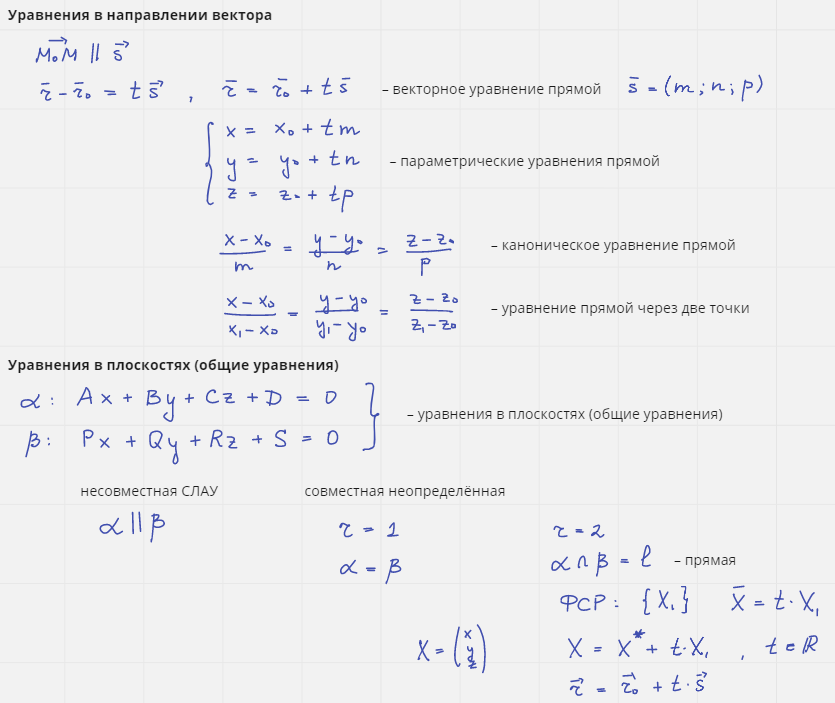 Уравнения в направлении вектора
M₀M⃗ || s⃗
r̄ - r̄₀ = t s⃗ , r̄ = r̄₀ + t s̄ – векторное уравнение прямой s̄ = (m; n; p)
x = x₀ + tm
y = y₀ + tn – параметрические уравнения прямой
z = z₀ + tp
(x - x₀)/m = (y - y₀)/n = (z - z₀)/p – каноническое уравнение прямой
(x - x₀)/(x₁ - x₀) = (y - y₀)/(y₁ - y₀) = (z - z₀)/(z₁ - z₀) – уравнение прямой через две точки
Уравнения в плоскостях (общие уравнения)
α: Ax + By + Cz + D = 0
– уравнения в плоскостях (общие уравнения)
β: Px + Qy + Rz + S = 0
несовместная СЛАУ совместная неопределённая
α || β r = 1 r = 2
α = β α ∩ β = l – прямая
ФСР: {X₁} X̄ = t · X₁
X = (x y z) X = X* + t·X₁ , t ∈ ℝ
r⃗ = r⃗₀ + t · s⃗